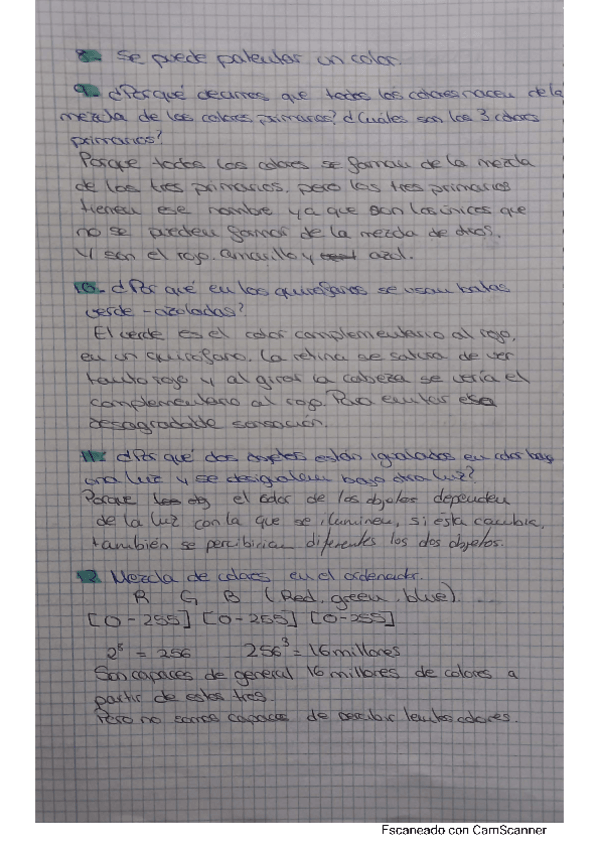 8- Se puede patentar un color.
9- ¿Por qué decimos que todos los colores nacen de la
mezcla de los colores primarios? ¿Cuáles son los 3 colores
primarios?
Porque todos los colores se forman de la mezcla
de los tres primarios, pero los tres primarios
tienen ese nombre ya que son los únicos que
no se pueden formar de la mezcla de otros.
Y son el rojo, amarillo y azul.
10- ¿Por qué en los quirófanos se usan batas
verde-azuladas?
El verde es el color complementario al rojo,
en un quirófano. La retina se satura de ver
tanto rojo y al girar la cabeza se vería el
complementario al rojo. Para evitar esa
desagradable sensación.
11- ¿Por qué dos objetos están igualados en color bajo
una luz y se desigualan bajo otra luz?
Porque el color de los objetos dependen
de la luz con la que se iluminen, si ésta cambia,
también se percibirían diferentes los dos objetos.
12 Mezcla de colores en el ordenador.
R G B (Red, green, blue)....
[0-255] [0-255] [0-255]
2⁸ = 256 256³ = 16 millones
Son capaces de general 16 millones de colores a
partir de estos tres.
Pero no somos capaces de percibir tantos colores.
Escaneado con CamScanner